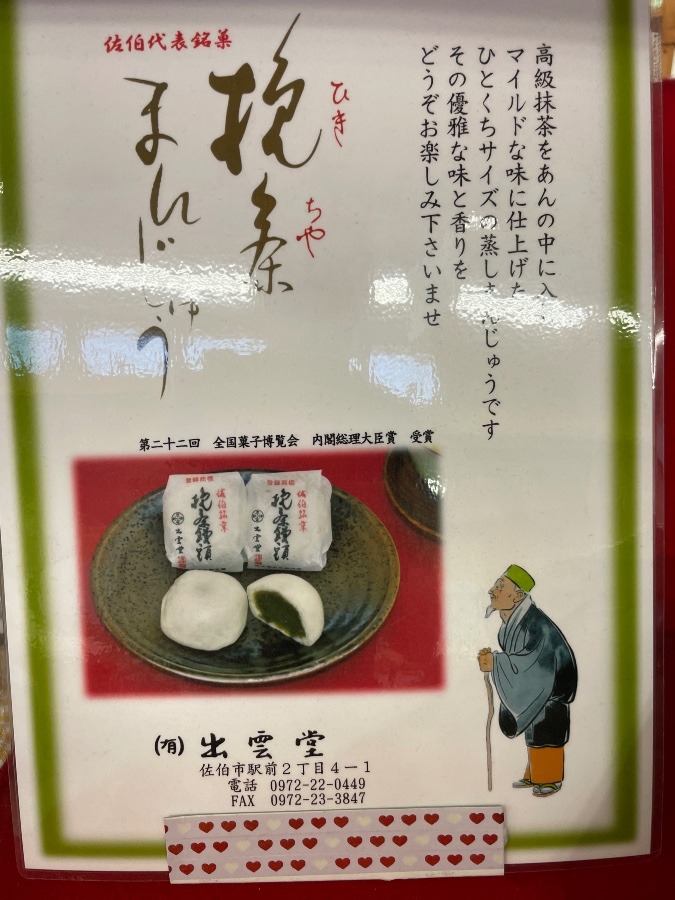 高級抹茶をあんの中に入
マイルドな味に仕上げた
ひとくちサイズの蒸しまんじゅうです
その優雅な味と香りを
どうぞお楽しみ下さいませ
佐伯代表銘菓
挽茶
ひき
ちや
まんじゅう
第二十二回 全国菓子博覧会 内閣総理大臣賞 受賞
登録商標
佐伯銘菓
挽茶饅頭
出雲堂
登録商標
佐伯銘菓
挽茶饅頭
出雲堂
(有) 出雲堂
佐伯市駅前2丁目4-1
電話 0972-22-0449
FAX 0972-23-3847